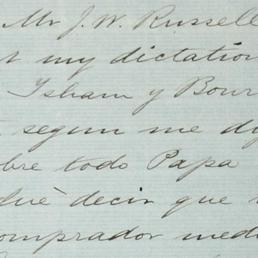 Mr J. W. Russell
my dictation
Isham y Bour
segun me di
bre todo Papa
què decir que
omprador med